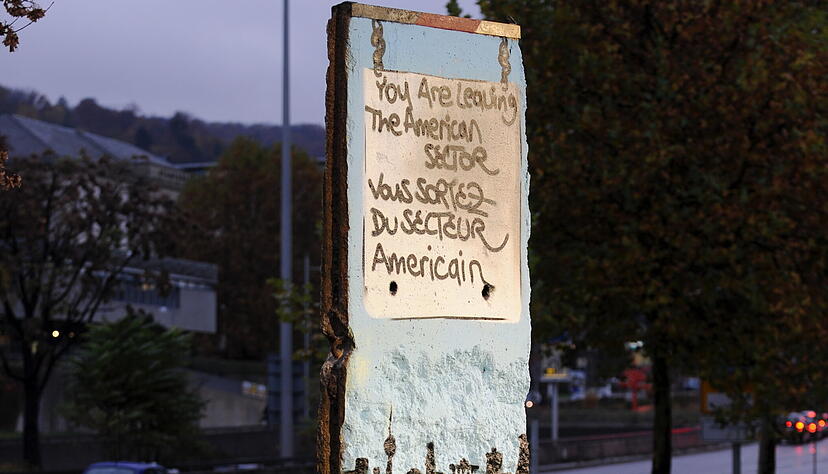 You Are Leaving
The American
SECTOR
Vous SORTEZ
DU SECTEUR
Americain